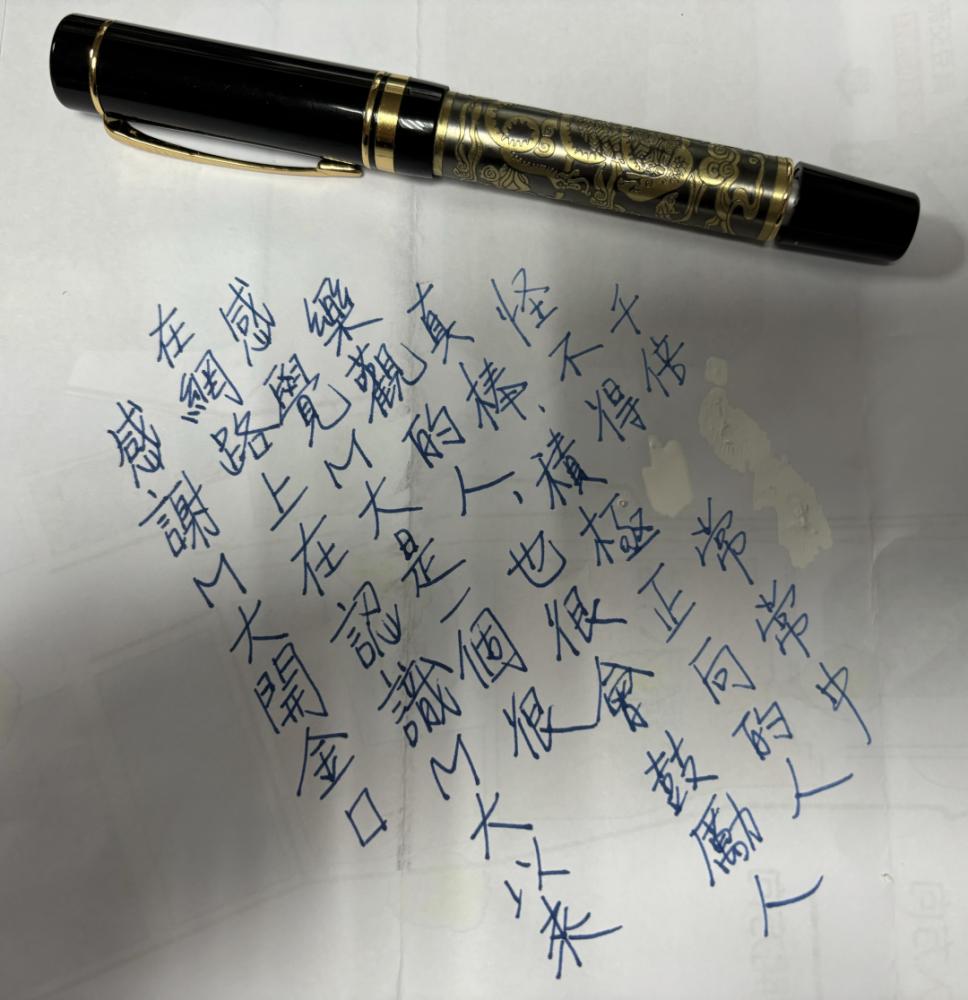 感謝M大開金口
在網路上在認識M大以来
感覺M大是一個很
樂觀的人、也很會鼓勵人
真棒、積極正向的人
怪不得常常中
千倍